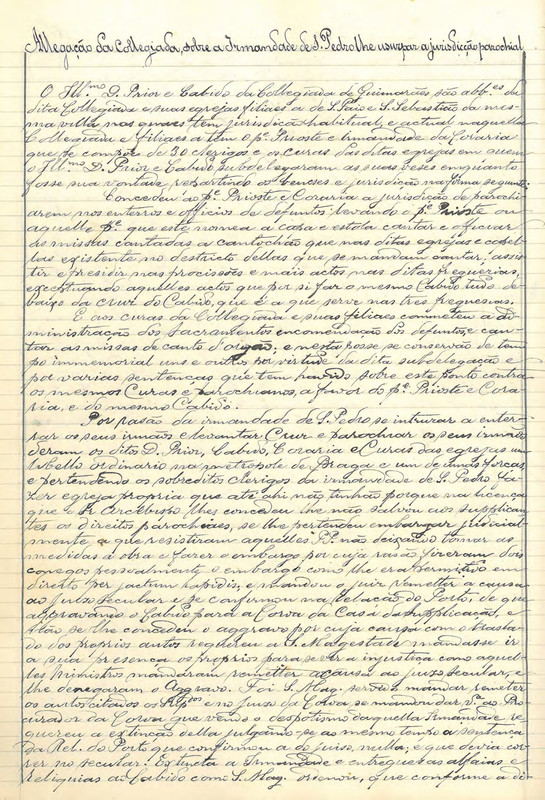 Allegação da Collegiada, sobre a Irmandade de S. Pedro lhe usurpar a jurisdicção parochial
O Ill.mo D. Prior e Cabido da Collegiada de Guimarães são abb.es da
dita Collegiada e suas egrejas filiaes a de S. Paio e S. Sebastião da mes-
ma villa, nas quaes tem jurisdicção habitual e actual naquella
Collegiada e filiaes a têm o p.e Prioste e Irmandade da Coraria
que se compõe de 30 clerigos e os curas das ditas egrejas em quem
o Ill.mo D. Prior e Cabido subdelegaram as suas vezes emquanto
fosse sua vontade, repartindo os benesses e jurisdicção na fórma seguinte:
Concedeu ao p.e Prioste e Coraria a jurisdicção de parochi-
arem nos enterros e officios de defuntos: levando o p.e Prioste ou
aquelle p.e que este nomea a capa e estola cantar e officiar
as missas cantadas a cantochão que nas ditas egrejas e capel-
las existente no destricto dellas que se mandam cantar, assis-
tir e presidir nas procissões e mais actos nas ditas freguezias,
exceptuando aquelles actos que por si faz o mesmo Cabido tudo de-
baixo da cruz do Cabido, que é a que serve nas tres freguesias.
E aos curas da Collegiada e suas filiaes commetteu a ad-
ministração dos Sacramentos encomendação dos defuntos, e can-
tar as missas de canto d'orgão; e nesta posse se conservão de tem-
po immemorial uns e outros por virtude da dita subdelegação e
por varias sentenças que tem havido sobre este ponto contra
os mesmos Curas e parochianos, a favor do p.e Prioste e Cora-
ria, e do mesmo Cabido.
Por rasão da irmandade de S. Pedro se intrusar a enter-
rar os seus irmãos e levantar Cruz e parochiar os seus irmãos
deram os ditos D. Prior, Cabido, Coraria e Curas das egrejas um
libello ordinario na metropole de Braga e um de umas forças,
e pertendendo os sobreditos clerigos da irmandade de S. Pedro fa-
zer egreja propria que até ahi não tinhão porque na licença
que o Ar. Arcebispo lhes concedeu lhe não salvou aos supplican-
tes os direitos parochiaes, se lhe pertendeu embargar judicial-
mente, a que resistiram aquelles R.os não deixando tomar as
medidas á obra e fazer o embargo por cuja rasão fizeram dois
conegos pessoalmente o embargo como lhe era permittido em
direito per jactum lapidis, e mandou o juiz remetter a causa
ao juizo secular e se confirmou na Relação do Porto, de que
aggravando o Cabido para a Coroa da Casa da Supplicação, e
não se lhe concedeu o aggravo por cuja causa com o trasla-
do dos proprios autos requereu a S. Magestade mandasse ir
a sua presença os proprios para se vêr a injustiça com aquel-
les ministros mandaram remetter a causa ao juizo secular, e
lhe denegaram o Aggravo. Foi S. Mag. servido mandar remeter
os autos citados os R.dos e no juizo da Coroa se mandou dar v.ta ao Pro-
curador da Coroa que vendo o despotismo daquella Irmandade re-
quereu a extincção della julgando-se ao mesmo tempo a sentença
da Rel. do Porto que confirmou a do juiso, nulla; e que devia cor-
rer no secular. Extincta a Irmandade e entregues as alfaias e
reliquias ao Cabido como S. Mag. ordenou, que conforme a di-